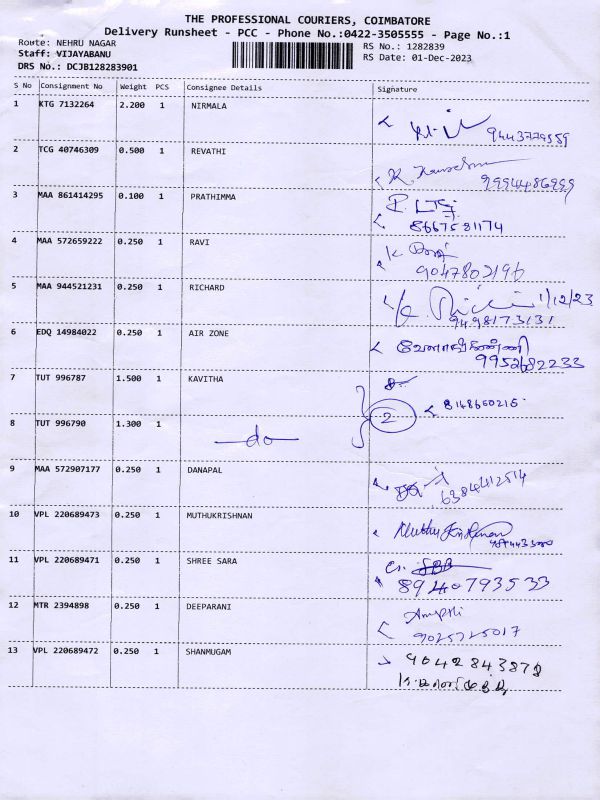 THE PROFESSIONAL COURIERS, COIMBATORE
Delivery Runsheet - PCC - Phone No.:0422-3505555 - Page No.:1
Route: NEHRU NAGAR
RS No.: 1282839
Staff: VIJAYABANU
RS Date: 01-Dec-2023
DRS No.: DCJB128283901
S No Consignment No Weight PCS Consignee Details Signature
1 KTG 7132264 2.200 1 NIRMALA
2 TCG 40746309 0.500 1 REVATHI
9994486999
3 MAA 861414295 0.100 1 PRATHIMMA
8667581174
4 MAA 572659222 0.250 1 RAVI
9047802196
5 MAA 944521231 0.250 1 RICHARD
1/12/23
9498173131
6 EDQ 14984022 0.250 1 AIR ZONE
9952682233
7 TUT 996787 1.500 1 KAVITHA
8148660215
8 TUT 996790 1.300 1 do 2
9 MAA 572907177 0.250 1 DANAPAL
6384412514
10 VPL 220689473 0.250 1 MUTHUKRISHNAN
11 VPL 220689471 0.250 1 SHREE SARA
8940793533
12 MTR 2394898 0.250 1 DEEPARANI
9025725017
13 VPL 220689472 0.250 1 SHANMUGAM
9042843878